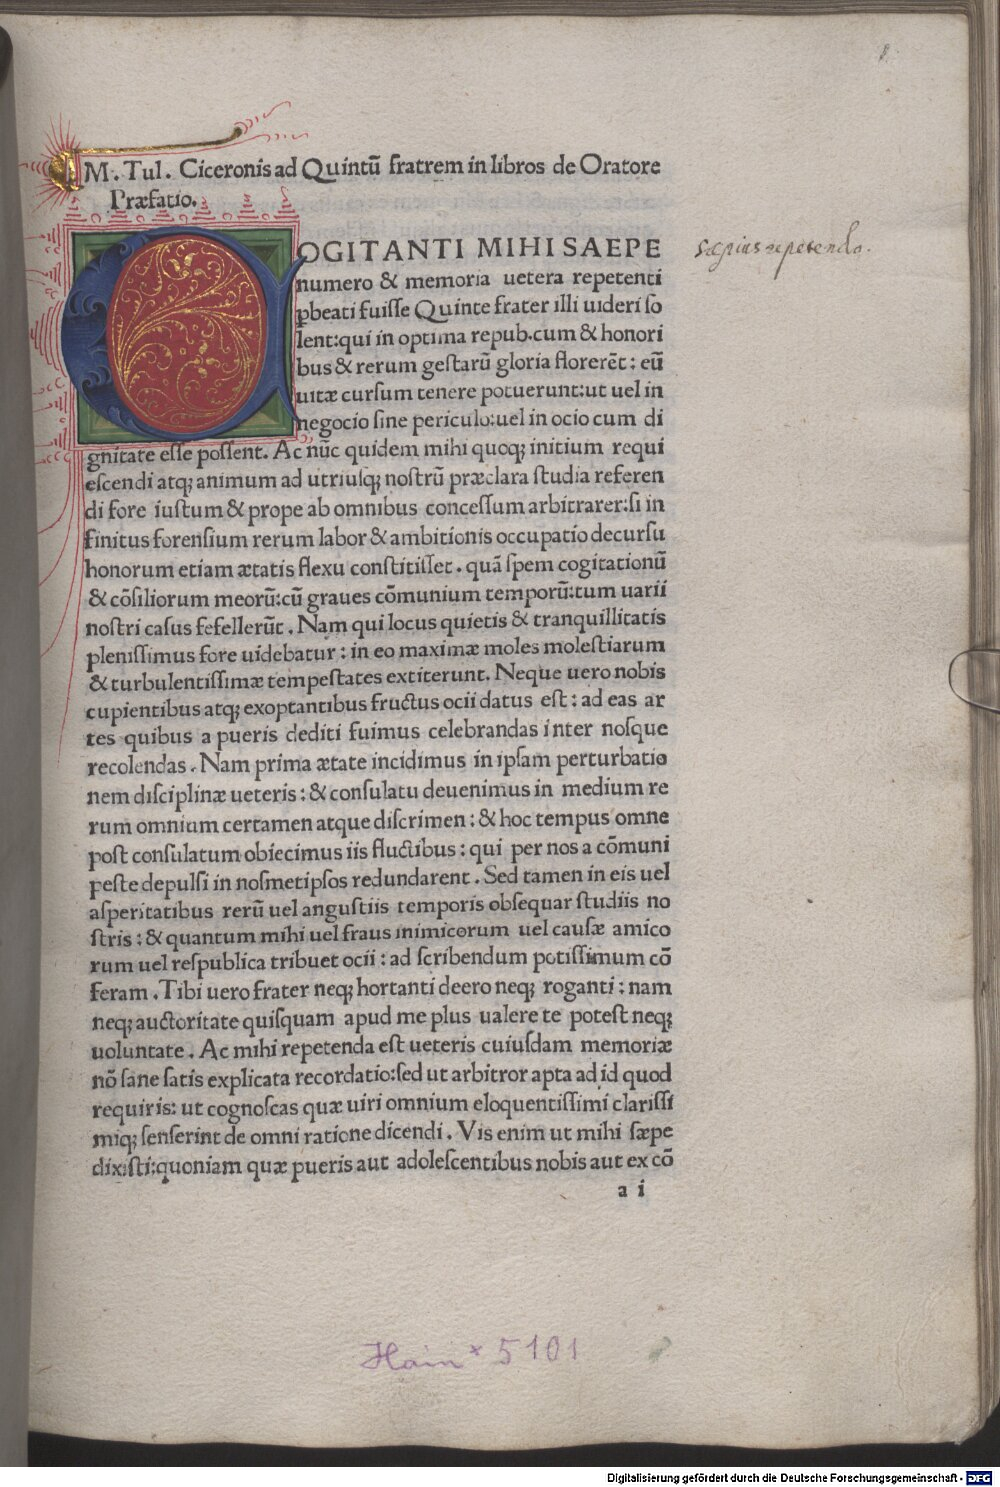 M. Tul. Ciceronis ad Quintū fratrem in libros de Oratore
Præfatio.
COGITANTI MIHI SAEPE
numero & memoria uetera repetenti
ꝑbeati fuiſſe Quinte frater illi uideri ſo
lent:qui in optima repub.cum & honori
bus & rerum geſtarū gloria florerēt : eū
uitæ curſum tenere potuerunt:ut uel in
negocio ſine periculo:uel in ocio cum di
gnitate eſſe poſſent. Ac nūc quidem mihi quoqꝫ initium requi
eſcendi atqꝫ animum ad utriuſqꝫ noſtrū præclara ſtudia referen
di fore iuſtum & prope ab omnibus conceſſum arbitrarer:ſi in
finitus forenſium rerum labor & ambitionis occupatio decurſu
honorum etiam ætatis flexu conſtitiſſet . quā ſpem cogitationū
& cōſiliorum meorū:cū graues cōmunium temporū:tum uarii
noſtri caſus fefellerūt . Nam qui locus quietis & tranquillitatis
pleniſſimus fore uidebatur : in eo maximæ moles moleſtiarum
& turbulentiſſimæ tempeſtates extiterunt. Neque uero nobis
cupientibus atqꝫ exoptantibus fructus ocii datus eſt : ad eas ar
tes quibus a pueris dediti fuimus celebrandas inter noſque
recolendas . Nam prima ætate incidimus in ipſam perturbatio
nem diſciplinæ ueteris : & conſulatu deuenimus in medium re
rum omnium certamen atque diſcrimen : & hoc tempus omne
poſt conſulatum obiecimus iis fluctibus : qui per nos a cōmuni
peſte depulſi in noſmetipſos redundarent . Sed tamen in eis uel
aſperitatibus rerū uel anguſtiis temporis obſequar ſtudiis no
ſtris : & quantum mihi uel fraus inimicorum uel cauſæ amico
rum uel reſpublica tribuet ocii : ad ſcribendum potiſſimum cō
feram . Tibi uero frater neqꝫ hortanti deero neqꝫ roganti : nam
neqꝫ auctoritate quiſquam apud me plus ualere te poteſt neqꝫ
uoluntate . Ac mihi repetenda eſt ueteris cuiuſdam memoriæ
nō ſane ſatis explicata recordatio:ſed ut arbitror apta ad id quod
requiris: ut cognoſcas quæ uiri omnium eloquentiſſimi clariſſi
miqꝫ ſenſerint de omni ratione dicendi . Vis enim ut mihi ſæpe
dixiſti:quoniam quæ pueris aut adoleſcentibus nobis aut ex cō
a i
sæpius repetendo.
Hain * 5101
Digitalisierung gefördert durch die Deutsche Forschungsgemeinschaft - DFG